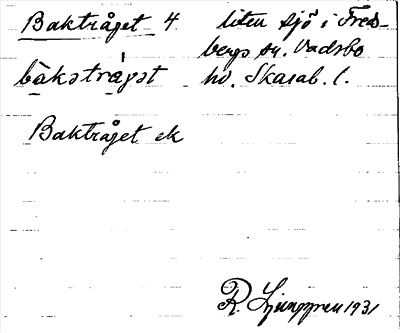 Baktråget 4 liten sjö i Freds-
bergs sn. Vadsbo
bàkstrǻgət hd. Skarab. l.
Baktråget ek
R. Ljunggren 1931